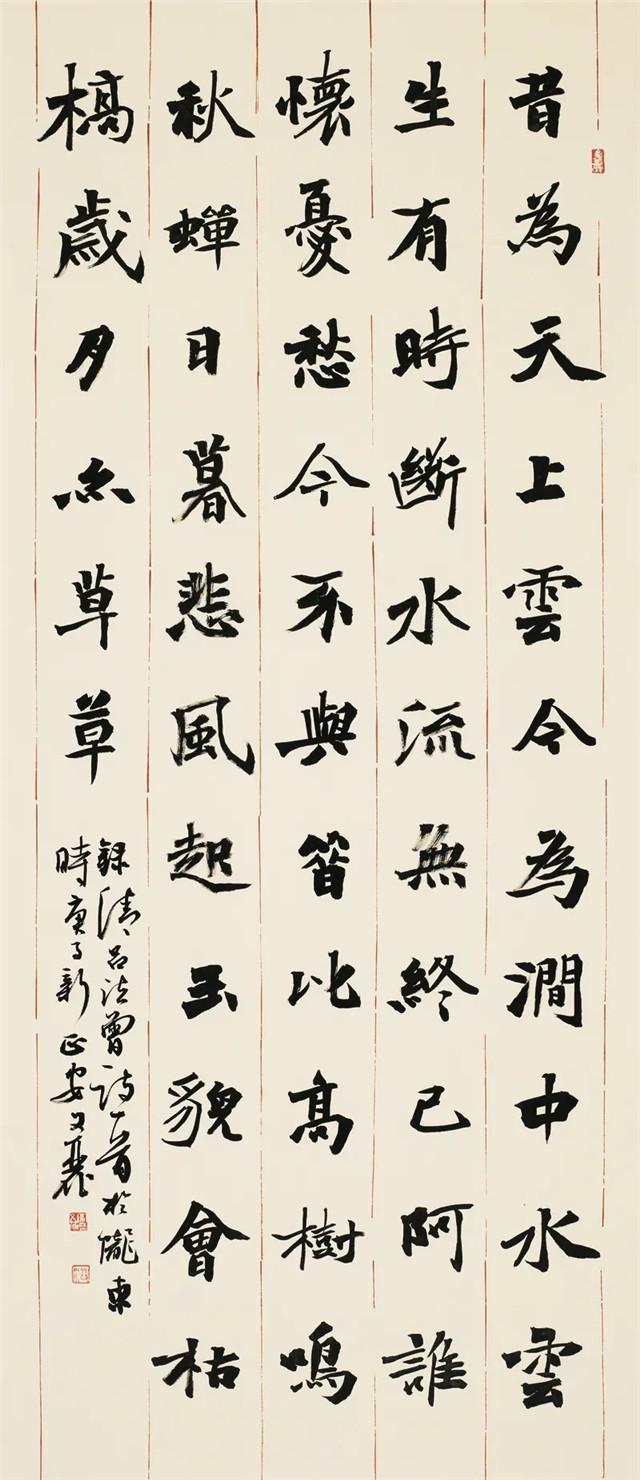 昔為天上雲今為澗中水雲
生有時斷水流無終已阿誰
懷憂愁今不與昔比高樹鳴
秋蟬日暮悲風起玉貌會枯
槁歲月亦草草
錄清呂法曾詩一首於隴東
時庚子新正安文麗